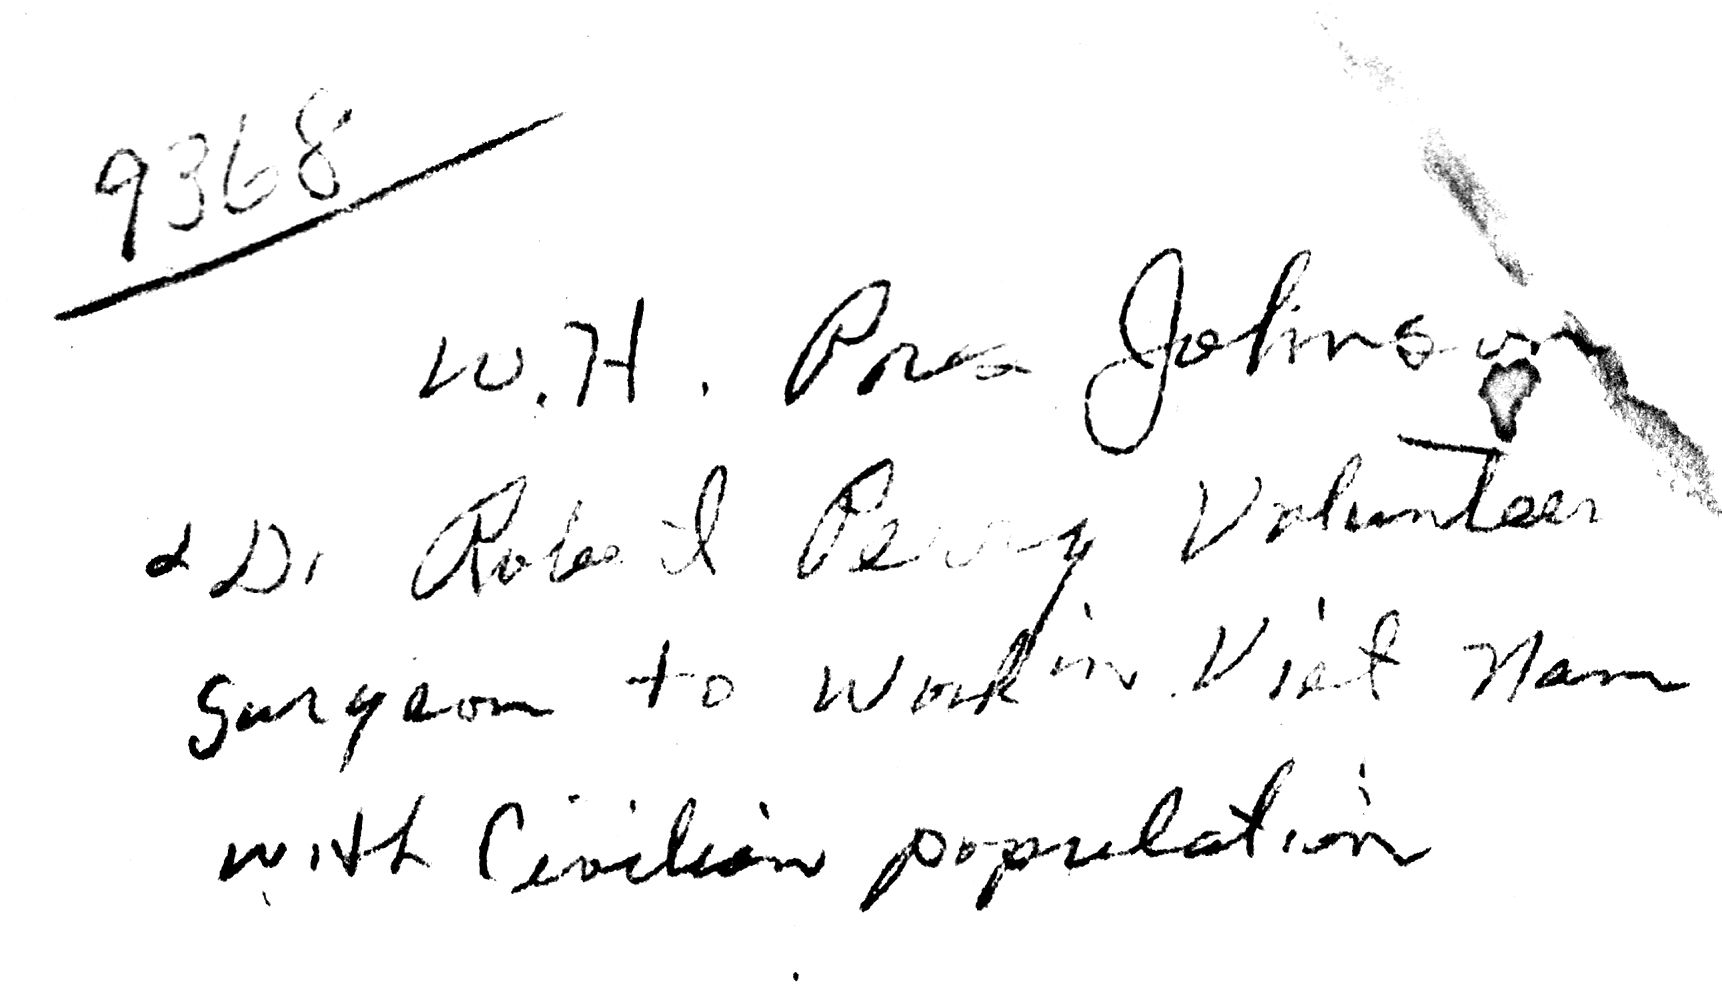 9368
W.H. Pres Johnson
& Dr Robert Perry Volunteer
Surgeon to work in Viet Nam
with Civilian population